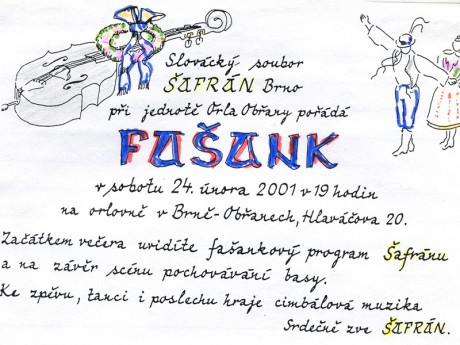 Slovácký soubor
ŠAFRÁN Brno
při jednotě Orla Obřany pořádá
FAŠANK
v sobotu 24. února 2001 v 19 hodin
na orlovně v Brně-Obřanech, Hlaváčova 20.
Začátkem večera uvidíte fašankový program Šafránu
a na závěr scénu pochovávání basy.
Ke zpěvu, tanci i poslechu hraje cimbálová muzika
Srdečně zve ŠAFRÁN.